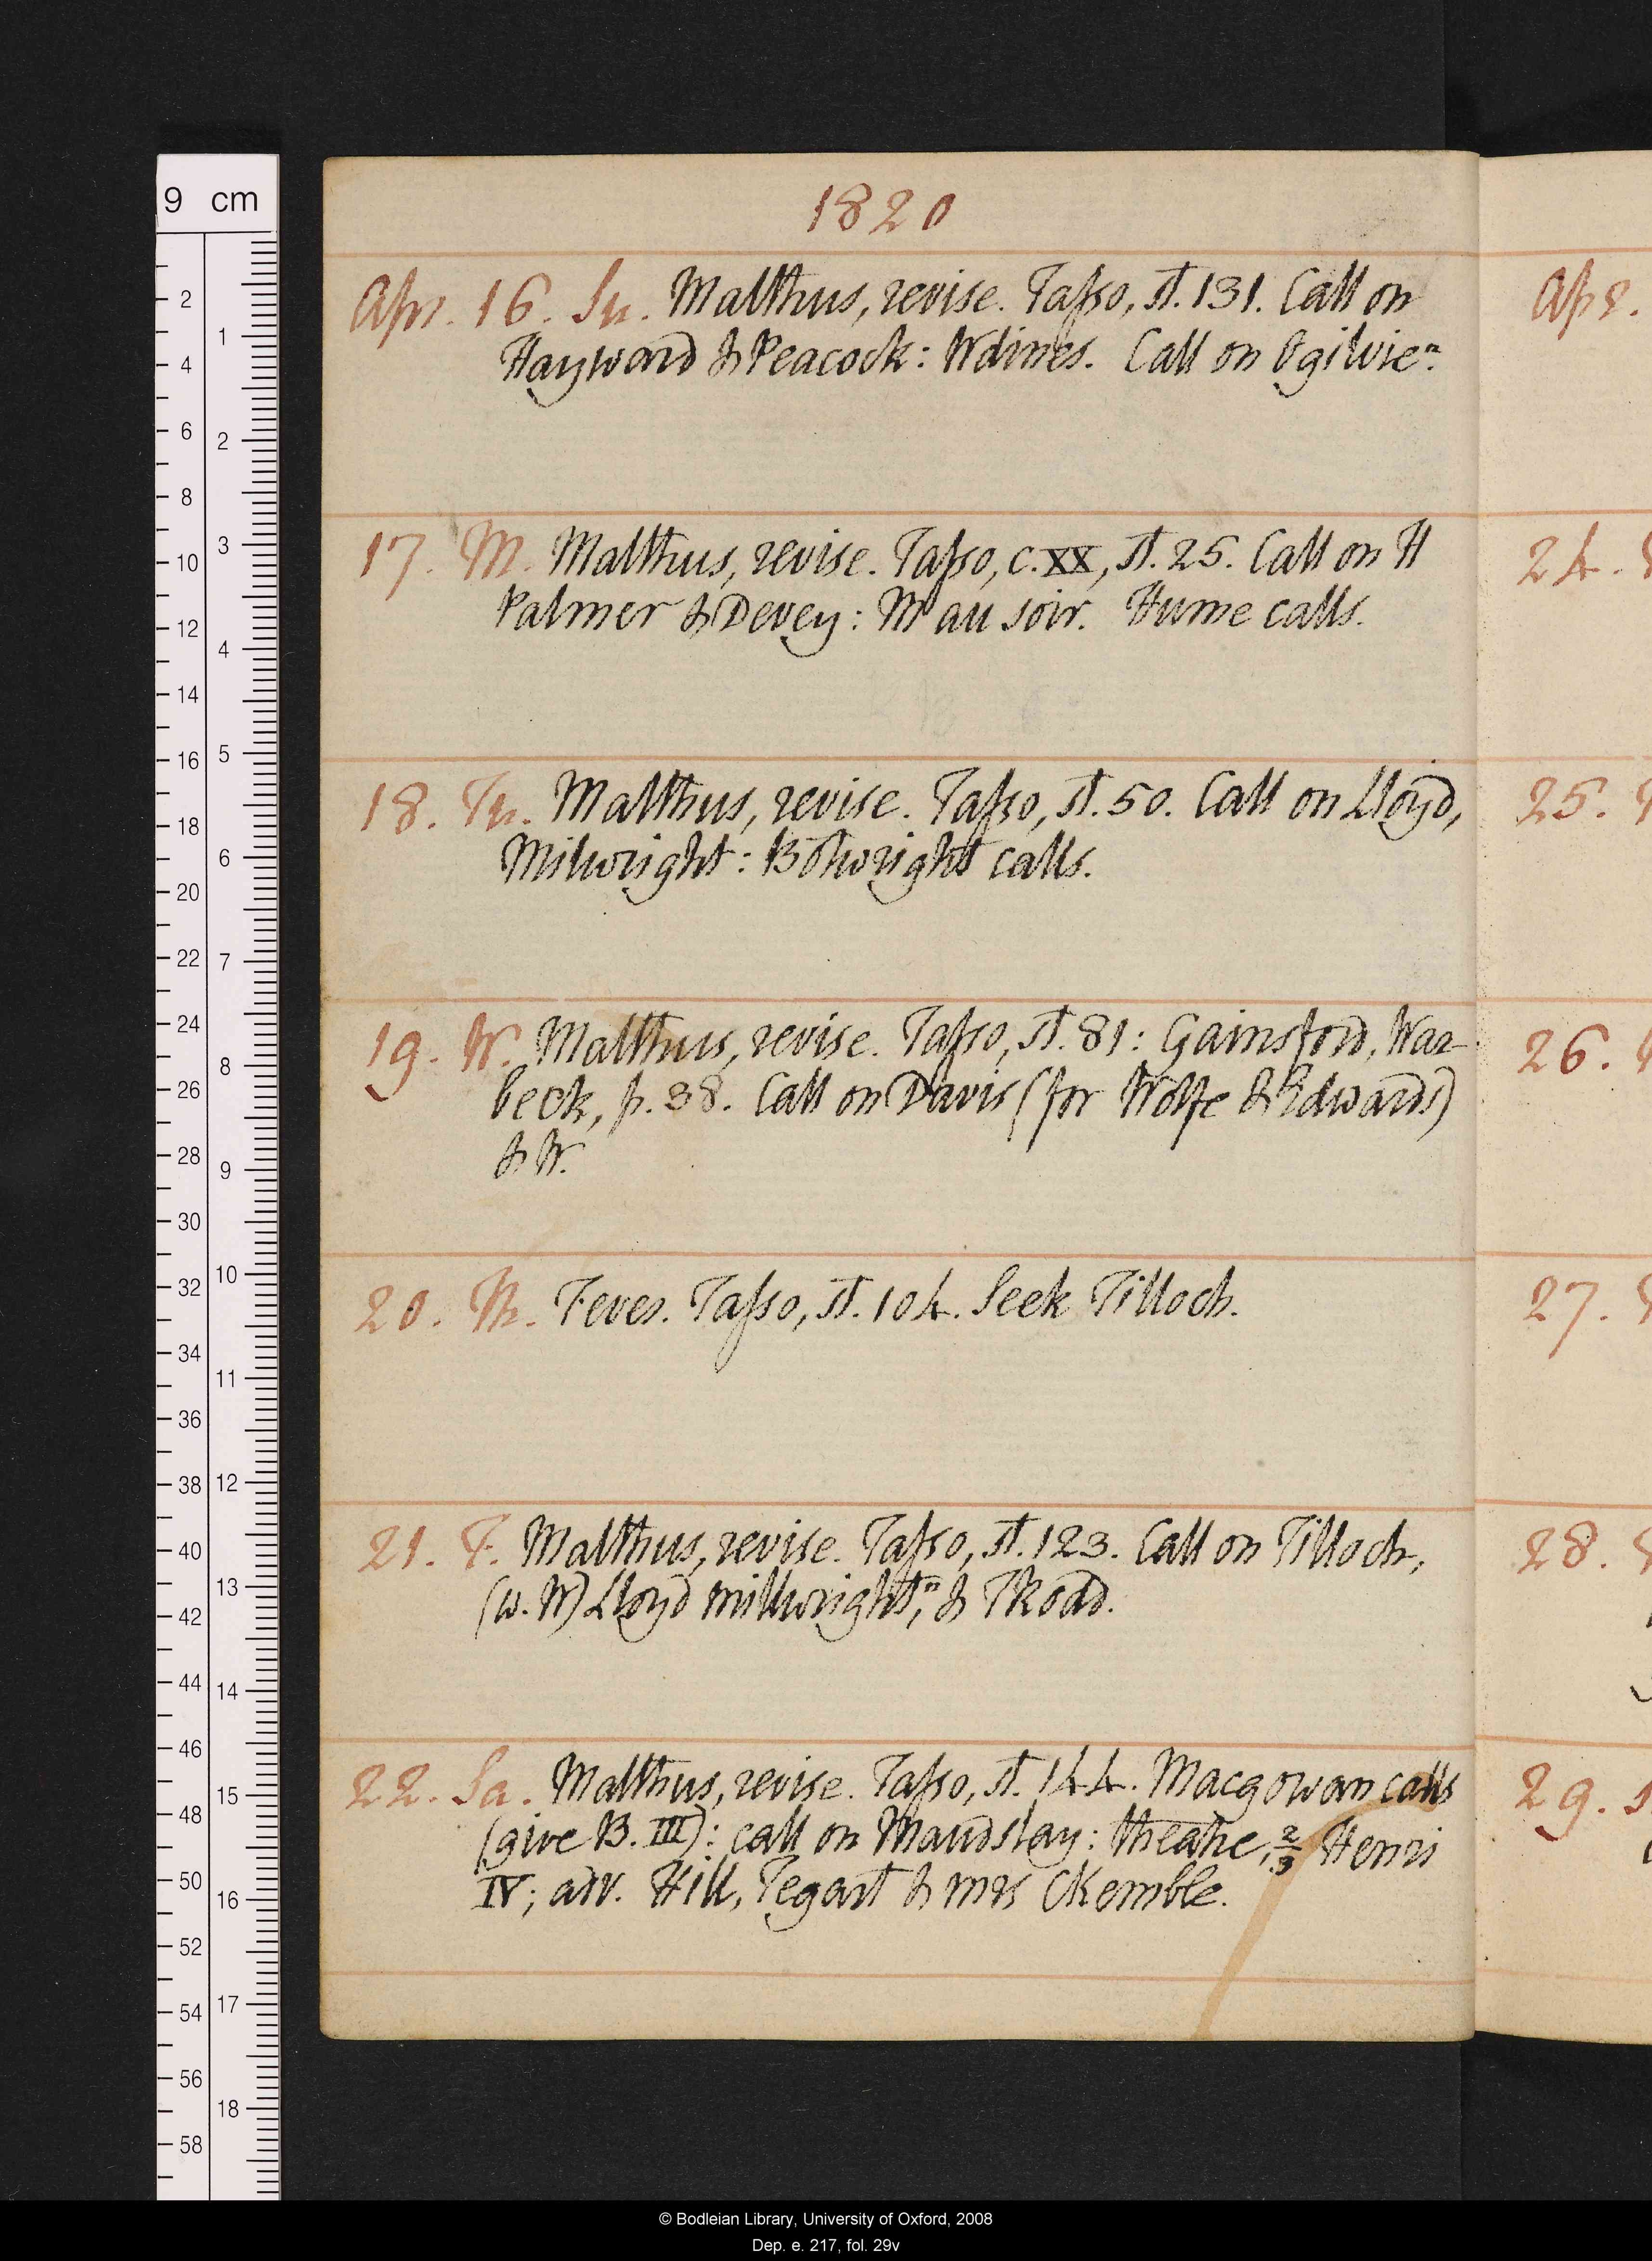 1820
Apr. 16. Su. Malthus, revise. Taſso, st. 131. Call on
Hayward & Peacock: W dines. Call on Ogilvie n.
17. M. Malthus, revise. Taſso, c. XX, st. 25. Call on H
Palmer & Devey: M au soir. Hume calls.
18. Tu. Malthus, revise. Taſso, st. 50. Call on Lloyd,
Milwright: Botwright calls.
19. W. Malthus, revise. Taſso, st. 81: Gainsford, War-
beck, p. 38. Call on Davis (for Wolfe & Edwards)
& W.
20. Th. Feves. Taſso, st. 104. Seek Tilloch.
21. F. Malthus, revise. Taſso, st. 123. Call on Tilloch,
(w. W) Lloyd millwright, n & TRoad.
22. Sa. Malthus, revise. Taſso, st. 144. Macgowan calls
(give B. III): call on Maudslay: theatre, 2/3 Henri
IV; adv. Hill, Tegart & mrs CKemble.
Apr.
24.
25.
26.
27.
28.
29.
9 cm
2 4 6 8 10 12 14 16 18 20 22 24 26 28 30 32 34 36 38 40 42 44 46 48 50 52 54 56 58
1 2 3 4 5 6 7 8 9 10 11 12 13 14 15 16 17 18
© Bodleian Library, University of Oxford, 2008
Dep. e. 217, fol. 29v